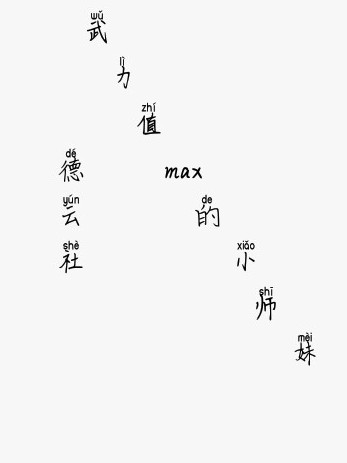 wǔ
武
lì
力
zhí
值
dé
德 max
yún de
云 的
shè xiǎo
社 小
shī
师
mèi
妹